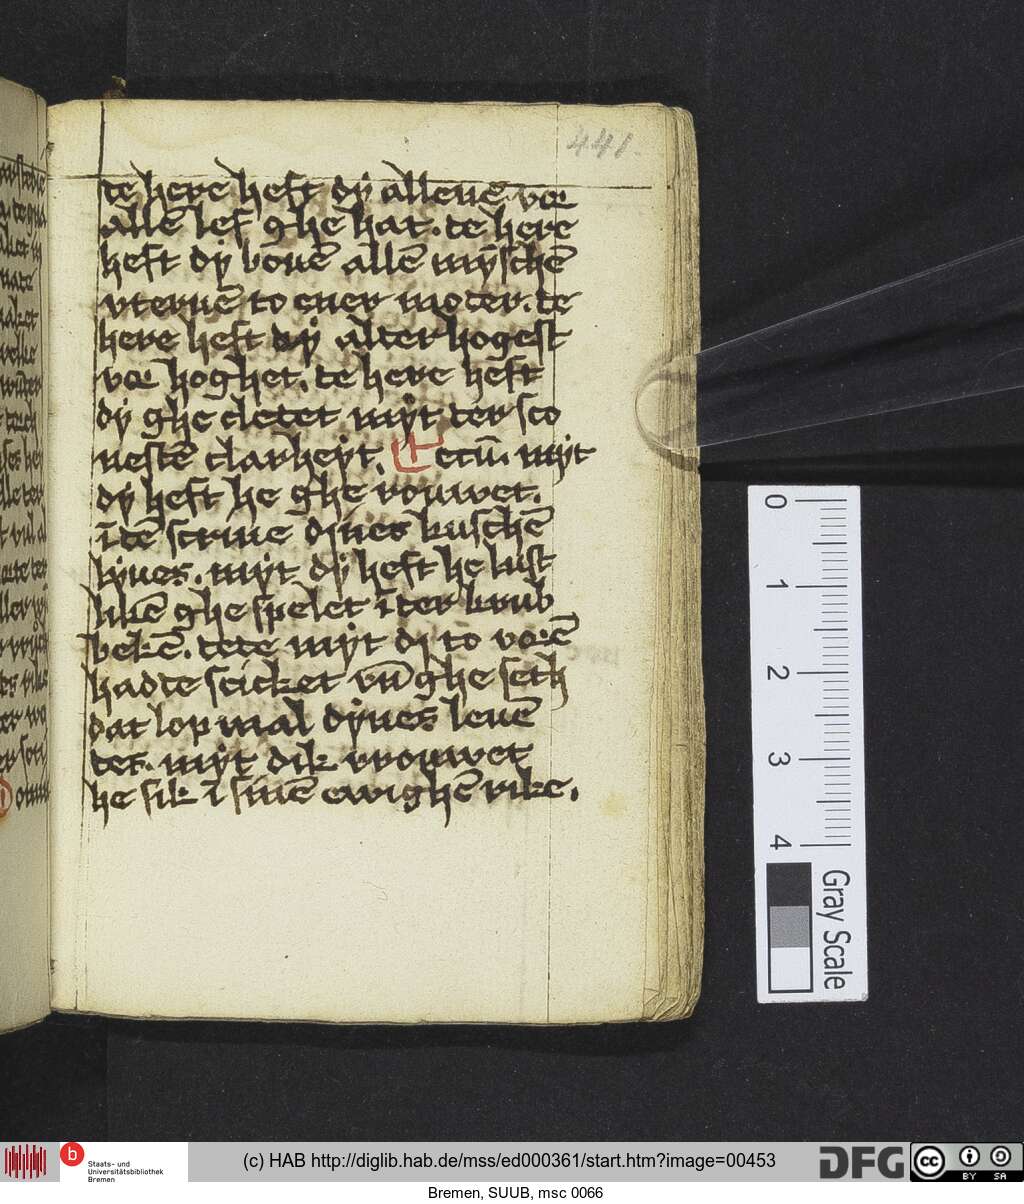 441
te here heft dÿ allenē vor
allē lef ghe hat. te here
heft dÿ bouē allē mÿschē
vternē to ener moter. te
here heft dÿ alter hogest
vor hoghet. te here heft
dÿ ghe cletet mÿt ter sco
nestē clarheÿt. Tecū. mÿt
dÿ heft he ghe vrouwet.
ī tē scrine dÿnes kuschē
lÿues. mÿt dÿ heft he lust
likē ghe spelet ī ter krub
bekē. tete mÿt dÿ to vorē
hadte scicket vn̄ ghe seth
dat lop mal dÿnes leuē
tes. mÿt dik vrouwet
he sik ī sinē ewighē rike.
0
1
2
3
4
Gray Scale
b
Staats- und
Universitätsbibliothek
Bremen
(c) HAB http://diglib.hab.de/mss/ed000361/start.htm?image=00453
DFG
cc
BY SA
Bremen, SUUB, msc 0066